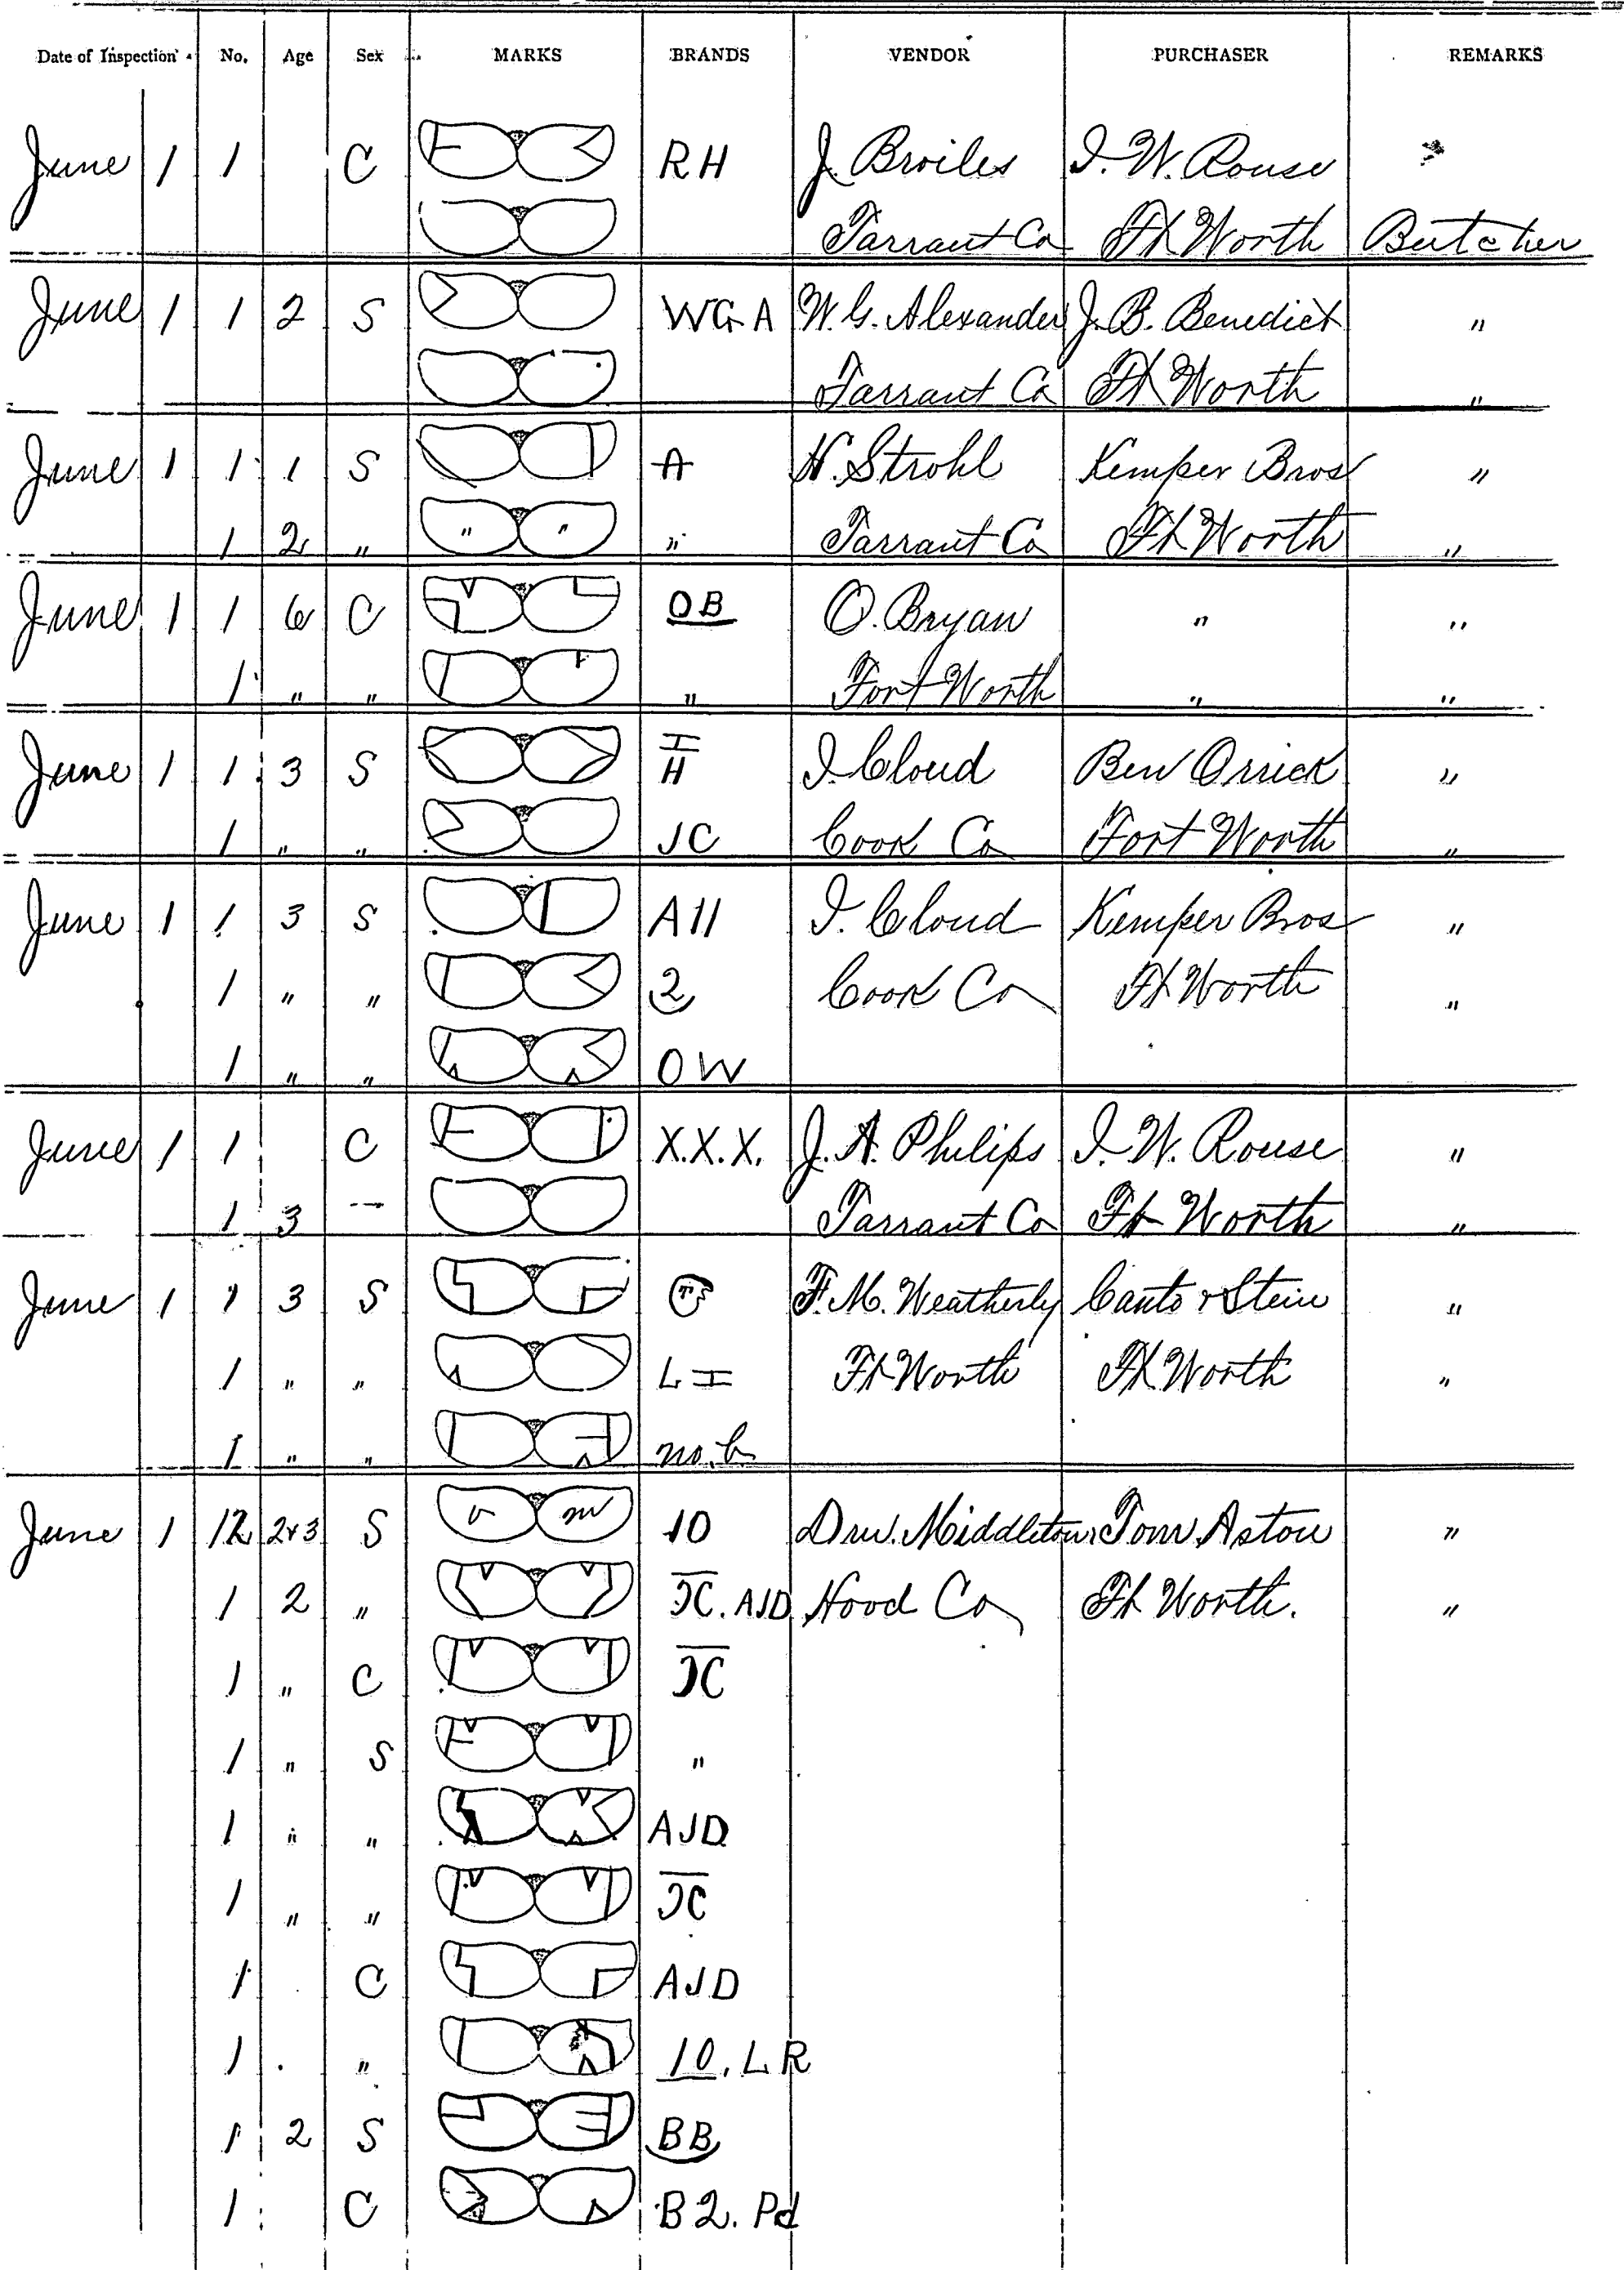 Date of Inspection No. Age Sex MARKS BRANDS VENDOR PURCHASER REMARKS
June 1 1 C RH J. Broiles I. W. Rouse
Tarrant Co Ft Worth Butcher
June 1 1 2 S WGA W. G. Alexander J. B. Benedict "
Tarrant Co Ft Worth "
June 1 1 1 S A N. Strohl Kemper Bros "
1 2 " " " " Tarrant Co Ft Worth "
June 1 1 6 C OB O. Bryan " "
1 " " " Fort Worth " "
June 1 1 3 S H I. Cloud Ben Orrick "
1 " " JC Cook Co Fort Worth "
June 1 1 3 S A11 I. Cloud Kemper Bros "
1 " " 2 Cook Co Ft Worth "
1 " " OW
June 1 1 C X.X.X. J. A. Philips I. W. Rouse "
1 3 Tarrant Co Ft Worth "
June 1 1 3 S F. M. Weatherly Canto & Stein "
1 " " L Ft Worth Ft Worth "
1 " " no. b
June 1 12 2&3 S 10 Drw. Middleton Tom Aston "
1 2 " JC. AJD Hood Co Ft Worth. "
1 " C JC
1 " S "
1 " " AJD
1 " " JC
1 C AJD
1 " 10. LR
1 2 S BB
1 C B2. Pd